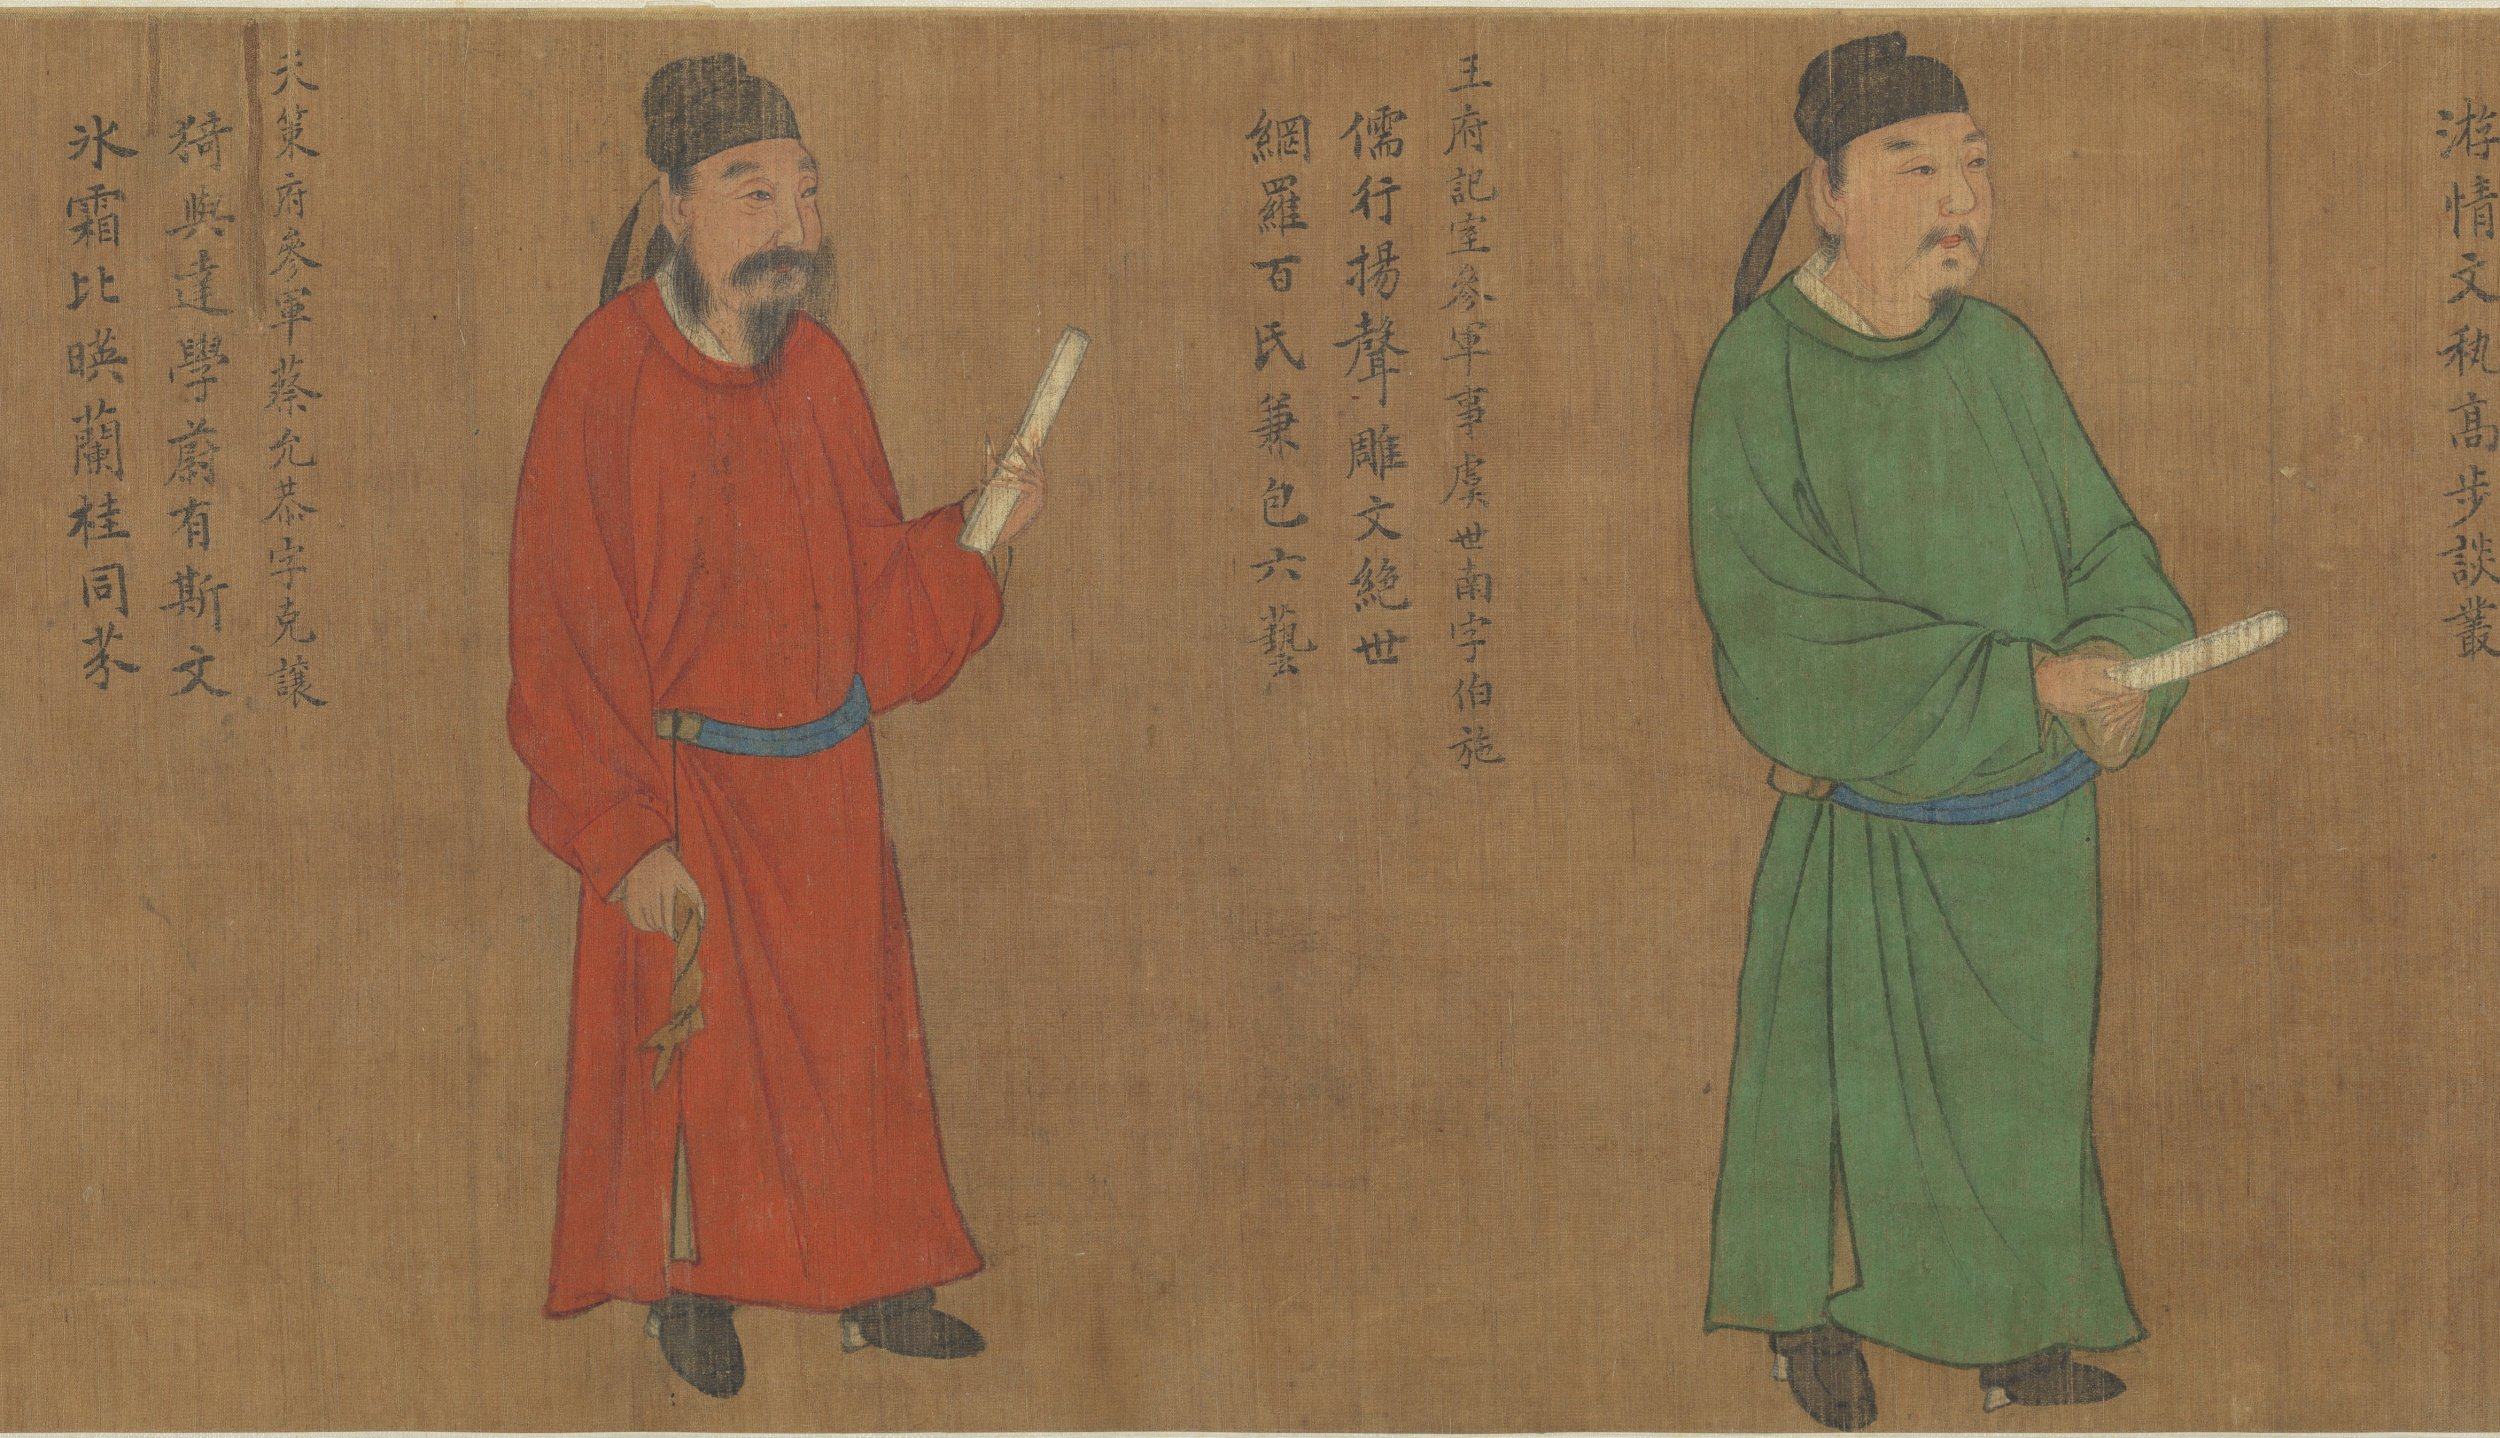 游情文執高步談叢
王府記室參軍事虞世南字伯施
儒行揚聲雕文絶世
網羅百氏兼包六藝
天策府參軍蔡允恭字克讓
猗與達學蔚有斯文
氷霜比暎蘭桂同芬